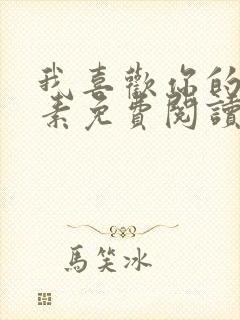 我喜歡你的
素免費閱讀
馬笑冰